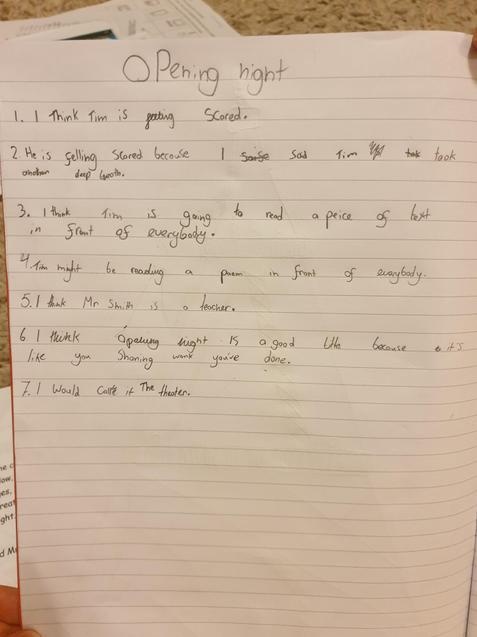 Opening night
1. I Think Tim is geeting Scared.
2. He is felling Scared because I said Tim took
another deep breath.
3. I think Tim is going to read a peice of text
in front of everybody.
4. Tim might be reading a poem in front of everybody.
5. I think Mr Smith is a teacher.
6 I think Opening night is a good title because it's
like you Showing work you've done.
7. I Would Call it The theater.